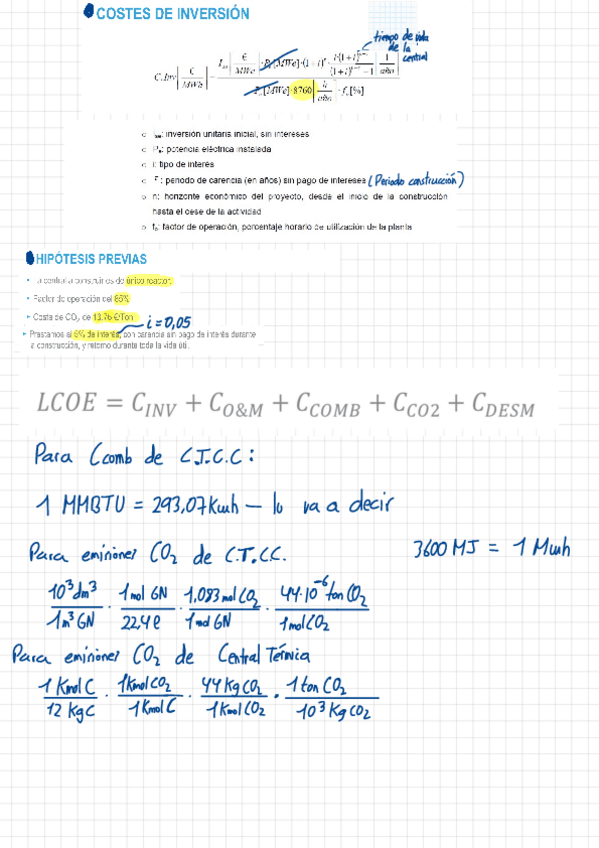 COSTES DE INVERSIÓN
tiempo de vida
de la
central
C.Inv[€/MWh] = [€/MWe] · [MWe]·(1+i) · i·(1+i) / (1+i) − 1 [1/año]
[MWe]·8760 [h/año] · f [%]
: inversión unitaria inicial, sin intereses
o P: potencia eléctrica instalada
o i: tipo de interés
: periodo de carencia (en años) sin pago de intereses (Periodo construcción)
o n: horizonte económico del proyecto, desde el inicio de la construcción
hasta el cese de la actividad
o f: factor de operación, porcentaje horario de utilización de la planta
HIPÓTESIS PREVIAS
central a construir es de único reactor
Factor de operación del 85%
Coste de CO₂ de €/Ton
i = 0,05
Préstamos al 5% de interés, con carencia sin pago de interés durante
la construcción, y retorno durante toda la vida útil.
LCOE = C_INV + C_O&M + C_COMB + C_CO2 + C_DESM
Para Ccomb de C.T.C.C:
1 MMBTU = 293,07 Kwh — lo va a decir
Para emisiones CO₂ de C.T.CC.
3600 MJ = 1 Mwh
10³dm³/1m³GN · 1mol GN/22,4ℓ · 1,083 mol CO₂/1mol GN · 44·10⁻⁶ ton CO₂/1mol CO₂
Para emisiones CO₂ de Central Térmica
1 Kmol C/12 KgC · 1Kmol CO₂/1 Kmol C · 44 Kg CO₂/1 Kmol CO₂ · 1 ton CO₂/10³ Kg CO₂